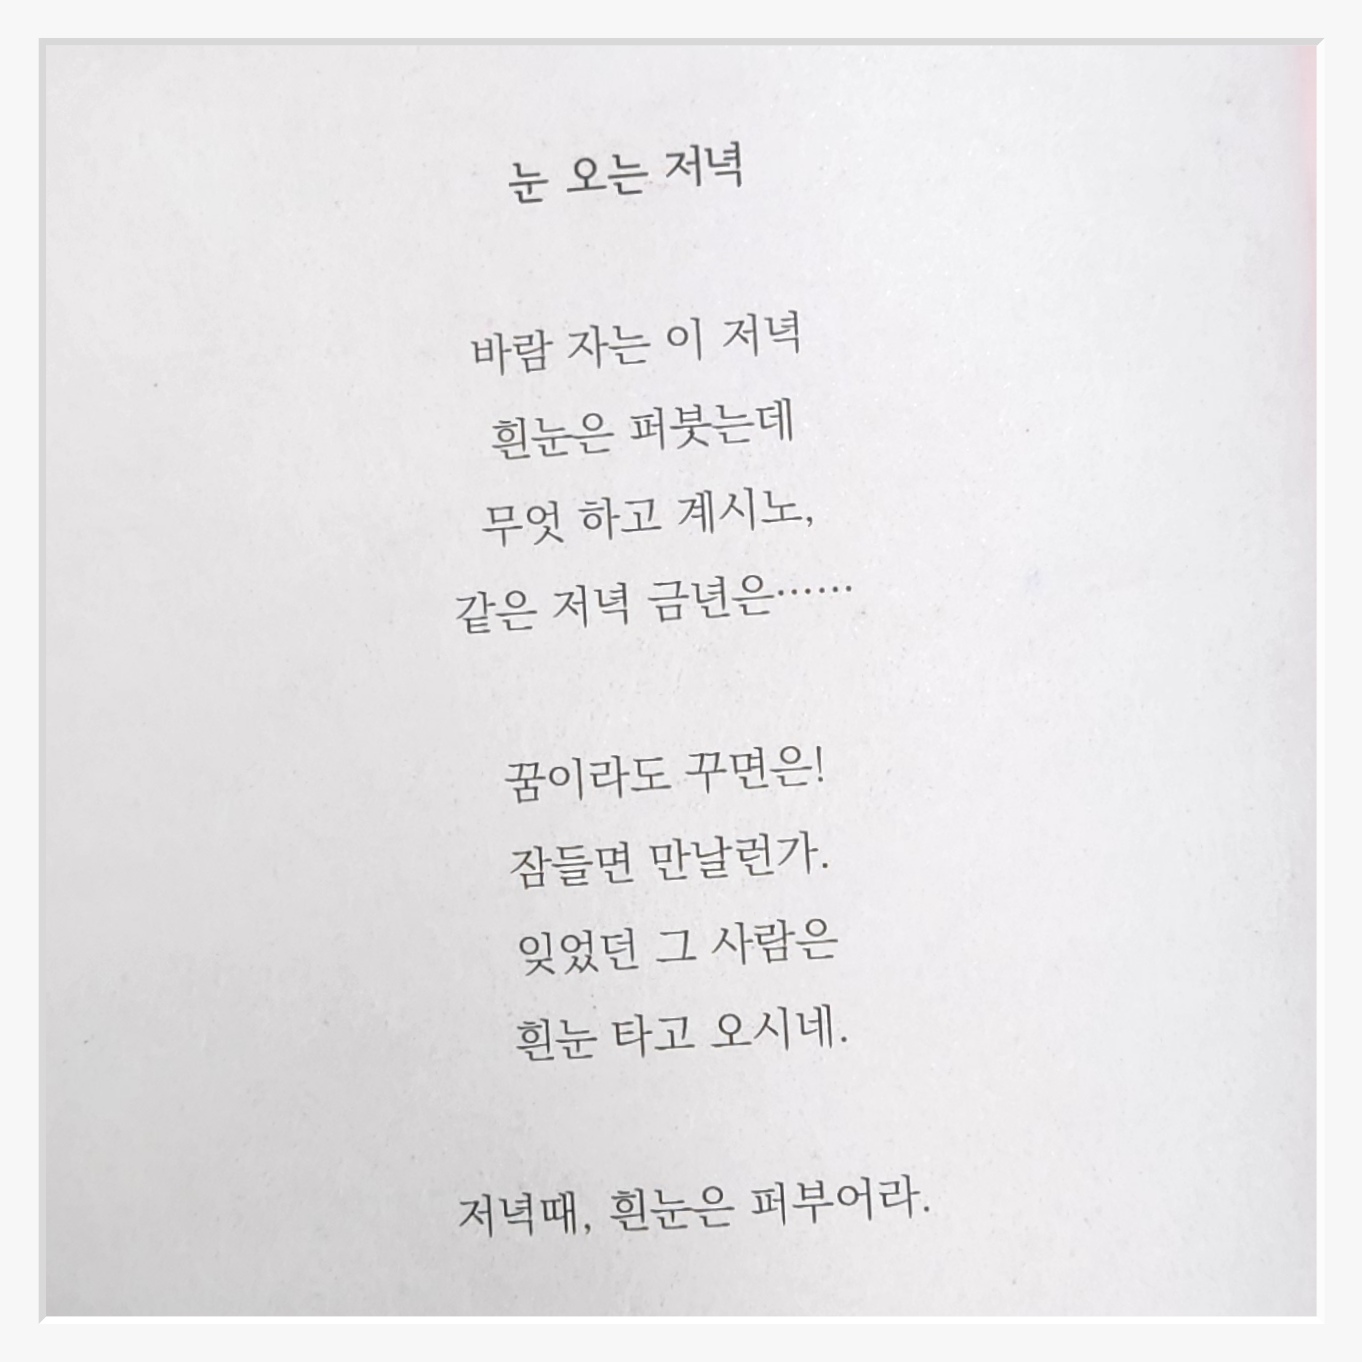 눈 오는 저녁
바람 자는 이 저녁
흰눈은 퍼붓는데
무엇 하고 계시노,
같은 저녁 금년은……
꿈이라도 꾸면은!
잠들면 만날런가.
잊었던 그 사람은
흰눈 타고 오시네.
저녁때, 흰눈은 퍼부어라.